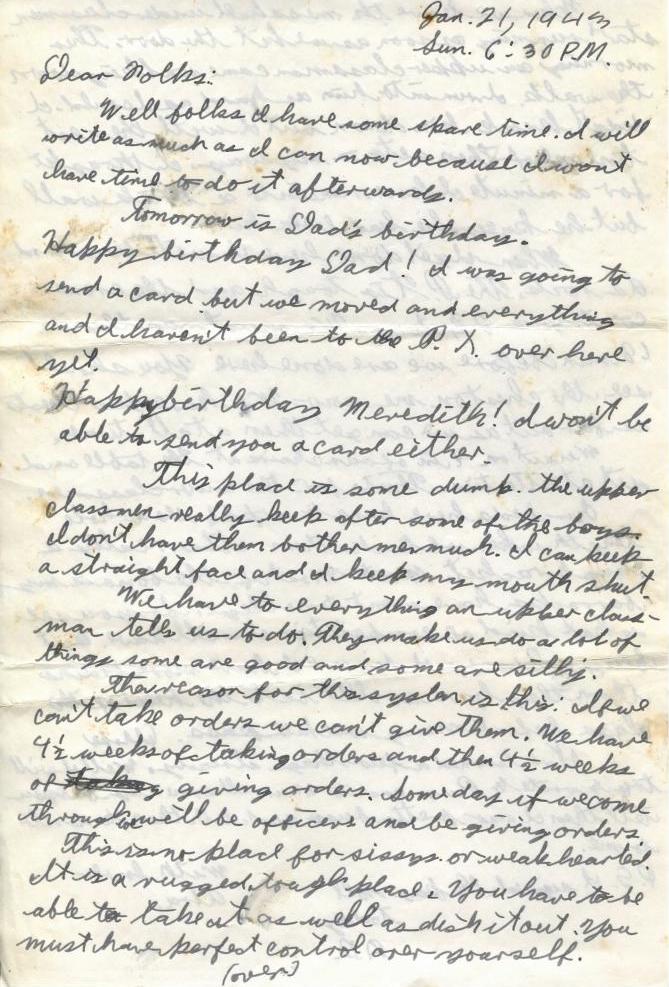 Jan. 21, 1943
Sun. 6:30 P.M.
Dear Folks:
Well folks I have some spare time. I will
write as much as I can now because I won't
have time to do it afterwards.
Tomorrow is Dad's birthday.
Happy birthday Dad! I was going to
send a card but we moved and everything
and I haven't been to the P. X. over here
yet.
Happy birthday Meredith! I won't be
able to send you a card either.
This place is some dump. the upper
classmen really keep after some of the boys.
I don't have them bother me much. I can keep
a straight face and I keep my mouth shut.
We have to everything an upper class-
man tells us to do. They make us do a lot of
things some are good and some are silly.
The reason for this system is this: If we
can't take orders we can't give them. We have
4½ weeks of taking orders and then 4½ weeks
of giving orders. Some day if we come
through we will be officers and be giving orders.
This is no place for sissys or weak hearted.
It is a rugged, tough place. You have to be
able to take it as well as dish it out. You
must have perfect control over yourself.
(over)